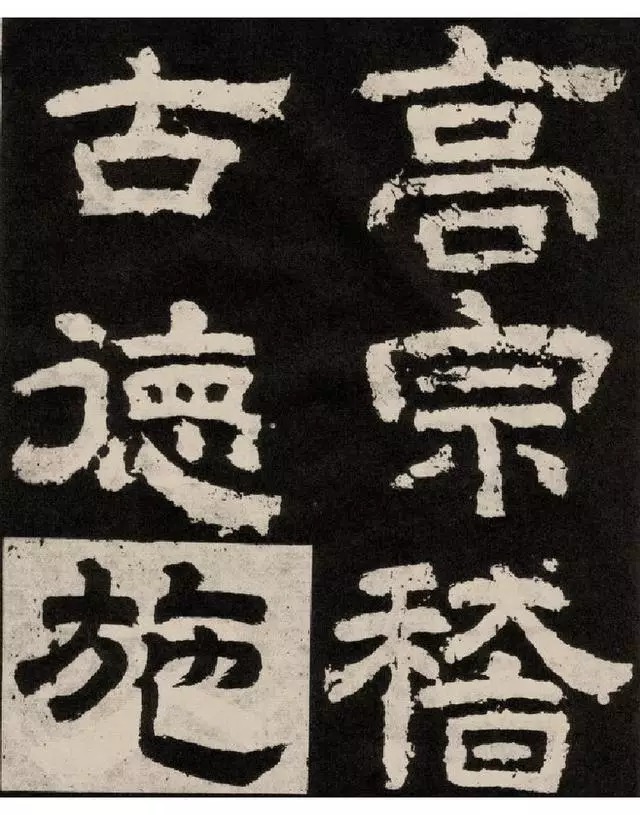 高宗稽
古德施